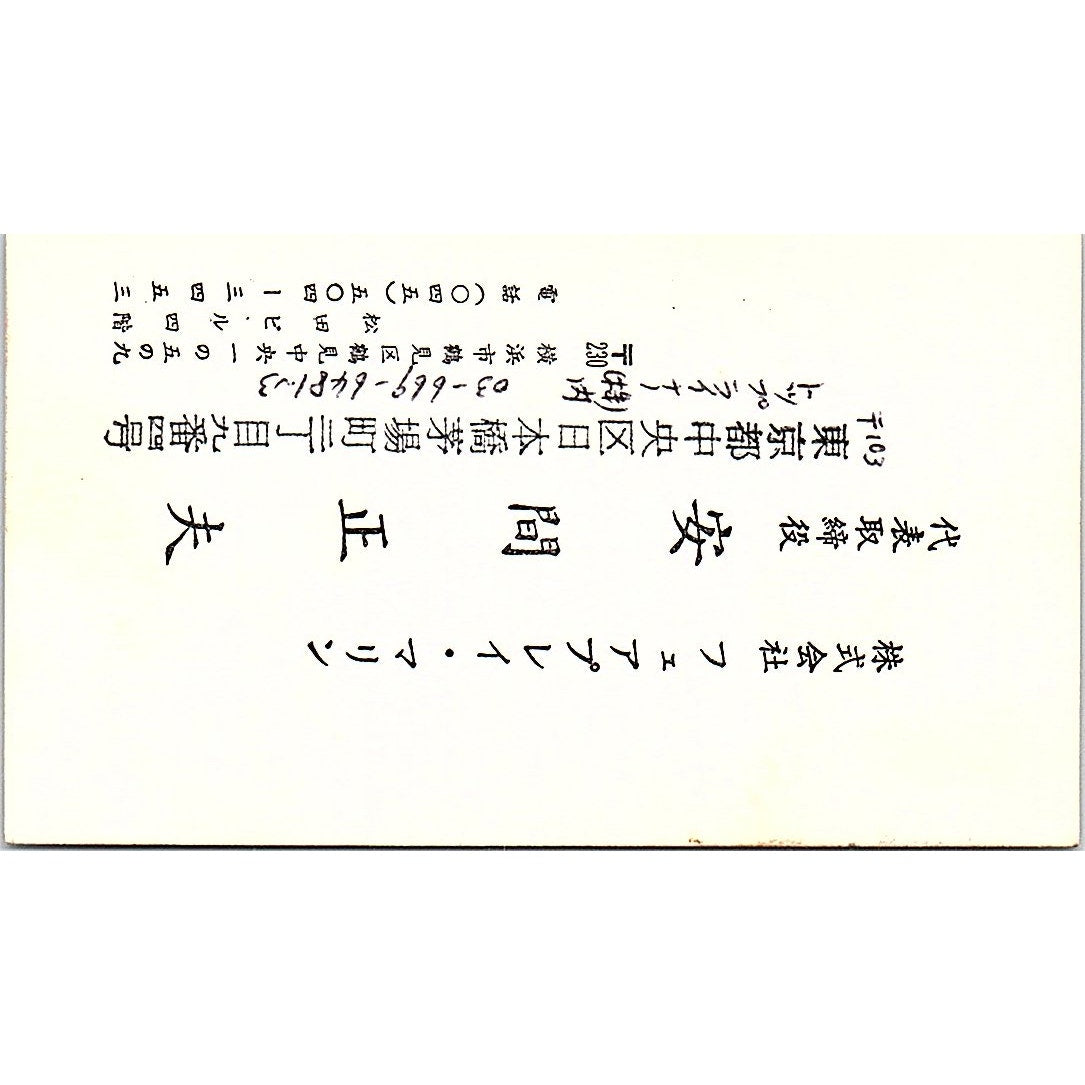 株式会社 フェアプレイ・マリン
代表取締役 安間正夫
〒103 東京都中央区日本橋茅場町二丁目九番四号
トップライナー(株)内 03-669-6481~3
〒230 横浜市鶴見区鶴見中央一の五の九
松田ビル四階
電話(〇四五)五〇四ー三四五三